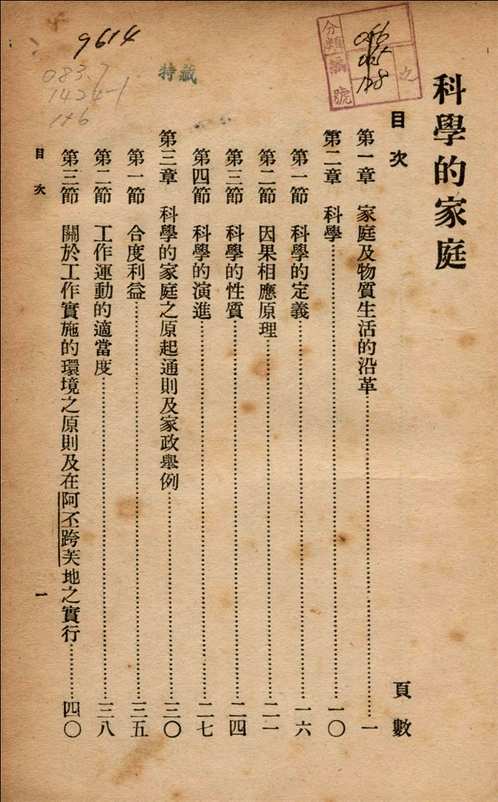 9614
083.7
1424-1
146
特藏
分類編號
之
科學的家庭
目次 頁數
第一章 家庭及物質生活的沿革 一
第二章 科學 一〇
第一節 科學的定義 一六
第二節 因果相應原理 二一
第三節 科學的性質 二四
第四節 科學的演進 二七
第三章 科學的家庭之原起通則及家政舉例 三〇
第一節 合度利益 三五
第二節 工作運動的適當度 三八
第三節 關於工作實施的環境之原則及在阿丕跨芙地之實行 四〇
目次 一